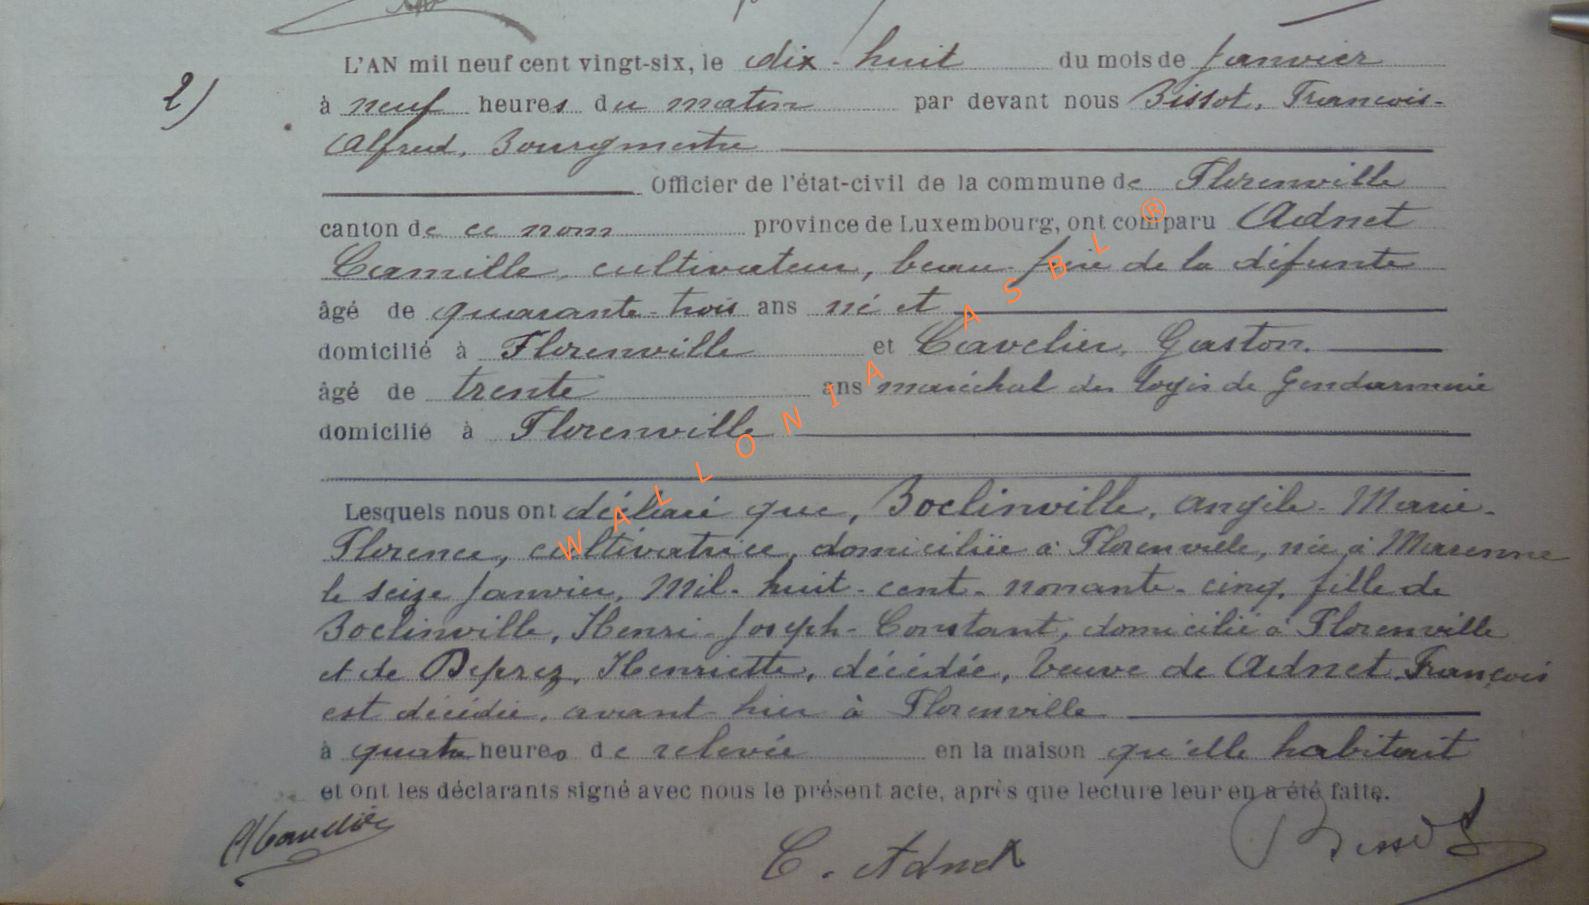 L'AN mil neuf cent vingt-six, le dix-huit du mois de Janvier
2) à neuf heures du matin par devant nous Bissot, François-
Alfred, Bourgmestre
Officier de l'état-civil de la commune de Florenville
canton de ce nom province de Luxembourg, ont comparu Adnet
Camille, cultivateur, beau-frère de la défunte
âgé de quarante-trois ans né et
domicilié à Florenville et Cavelier, Gaston.
âgé de trente ans maréchal des logis de Gendarmerie
domicilié à Florenville
Lesquels nous ont déclaré que, Boclinville, Angèle-Marie-
Florence, cultivatrice, domiciliée à Florenville, née à Marenne
le seize Janvier, Mil-huit-cent-nonante-cinq, fille de
Boclinville, Henri-Joseph-Constant, domicilié à Florenville
et de Deprez, Henriette, décédée, Veuve de Adnet François
est décédée, avant-hier à Florenville
à quatre heures de relevée en la maison qu'elle habitait
et ont les déclarants signé avec nous le présent acte, après que lecture leur en a été faite.
C. Adnet Bissot
WALLONIA ASBL ®